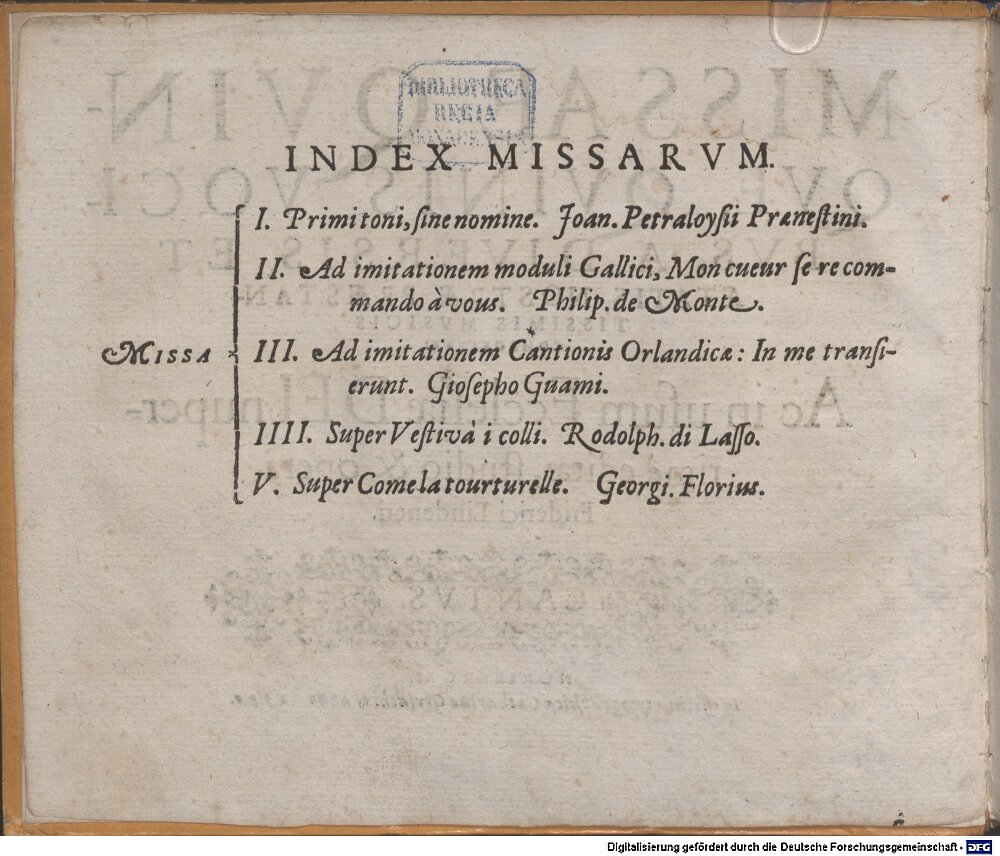 BIBLIOTHECA
REGIA
MONACENSIS
INDEX MISSARVM.
I. Primi toni, sine nomine. Joan. Petraloysii Prænestini.
II. Ad imitationem moduli Gallici, Mon cueur se recom-
mando à vous. Philip. de Monte.
MISSA III. Ad imitationem Cantionis Orlandicæ: In me transi-
erunt. Giosepho Guami.
IIII. Super Vestivà i colli. Rodolph. di Lasso.
V. Super Come la tourturelle. Georgi. Florius.
Digitalisierung gefördert durch die Deutsche Forschungsgemeinschaft - DFG